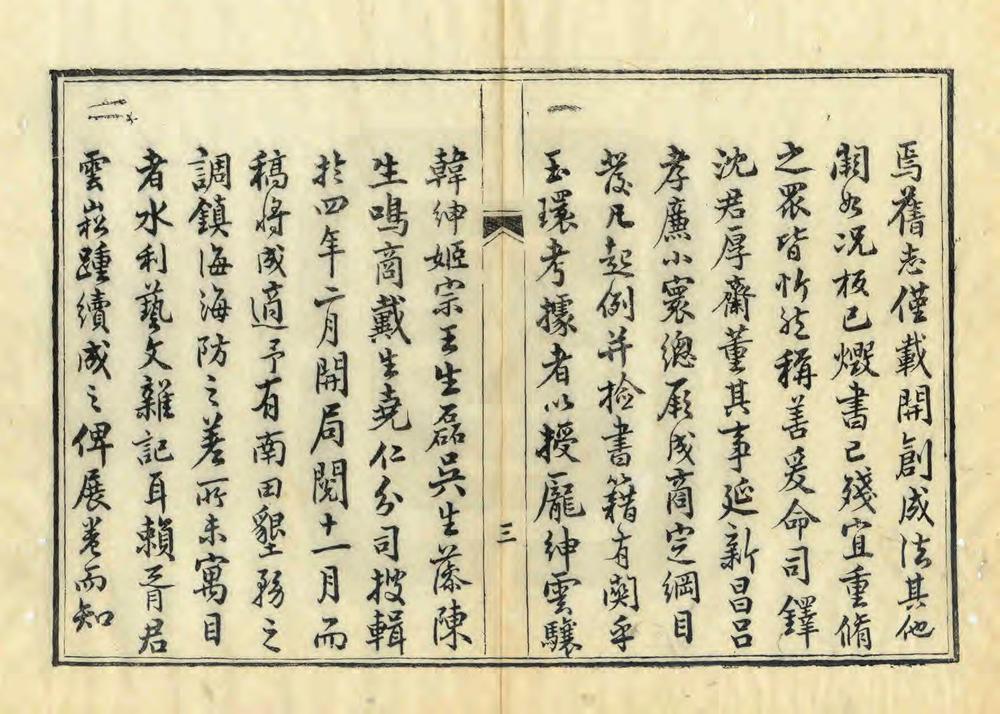 一
焉舊志僅載開創成法其他
闕如况板已燬書已殘宜重脩
之眾皆忻然稱善爰命司鐸
沈君厚齋董其事延新昌呂
孝廉小寰總厥成商定綱目
發凡起例并檢書籍有関乎
玉環考據者以授龐紳雲驤
三
二
韓紳姬宗王生磊吳生蓁陳
生鳴商戴生堯仁分司搜輯
於四年二月開局閱十一月而
稿將成適予有南田墾務之
調鎮海海防之差所未寓目
者水利藝文雜記耳賴胥君
雲崧踵續成之俾展卷而知